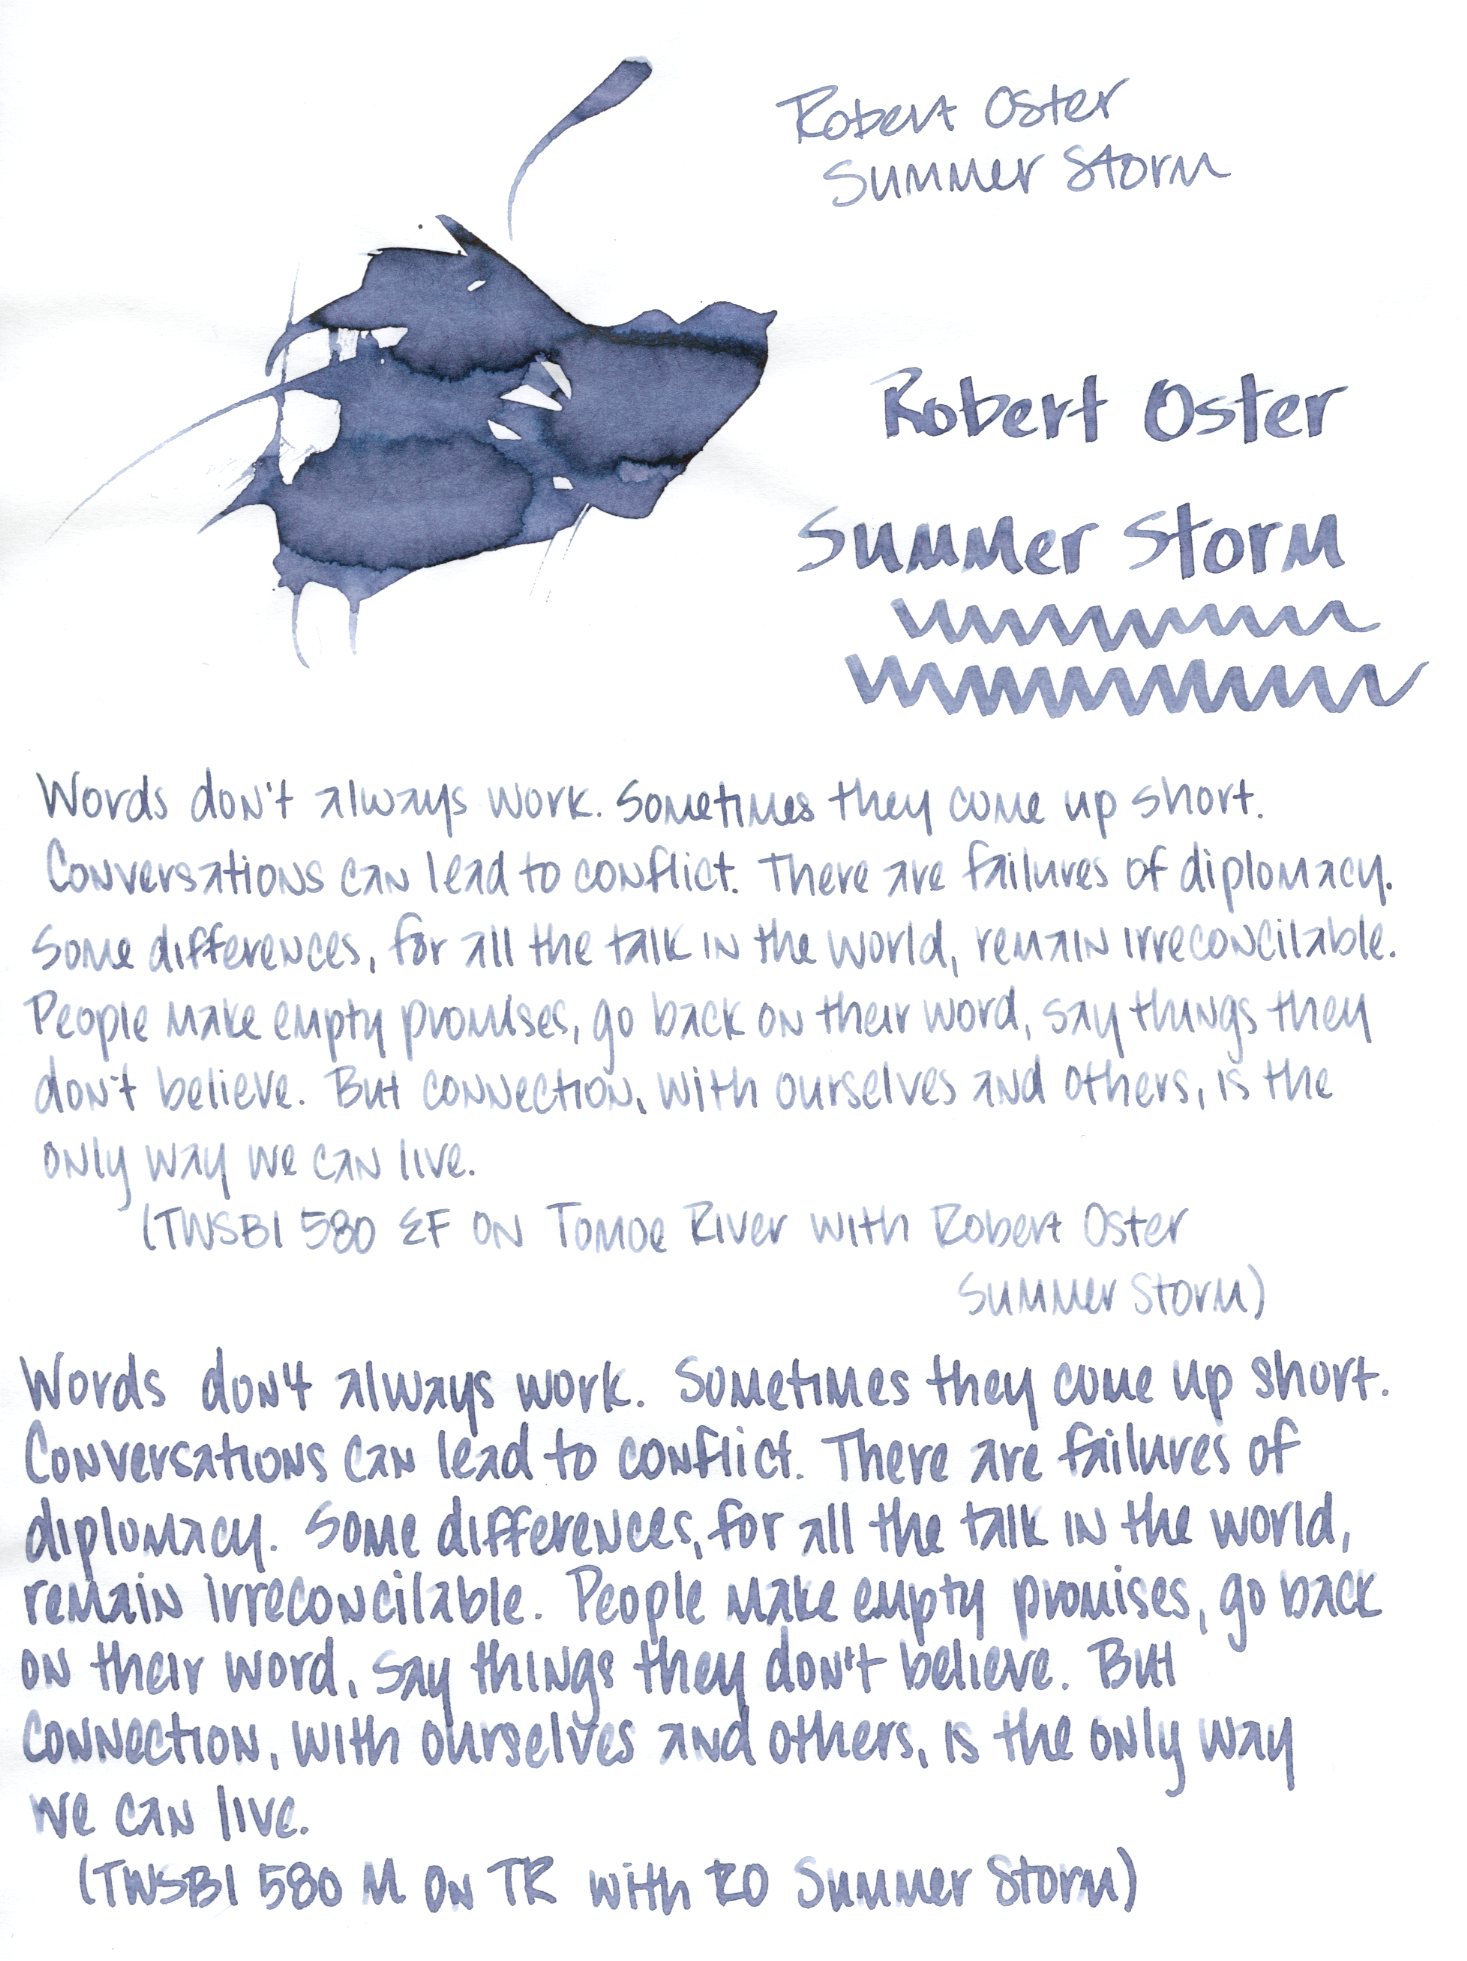 Robert Oster
Summer Storm
Robert Oster
Summer Storm
Words don't always work. Sometimes they come up short.
Conversations can lead to conflict. There are failures of diplomacy.
Some differences, for all the talk in the world, remain irreconcilable.
People make empty promises, go back on their word, say things they
don't believe. But connection, with ourselves and others, is the
only way we can live.
(TWSBI 580 EF on Tomoe River with Robert Oster
Summer Storm)
Words don't always work. Sometimes they come up short.
Conversations can lead to conflict. There are failures of
diplomacy. Some differences, for all the talk in the world,
remain irreconcilable. People make empty promises, go back
on their word, say things they don't believe. But
connection, with ourselves and others, is the only way
we can live.
(TWSBI 580 M on TR with RO Summer Storm)